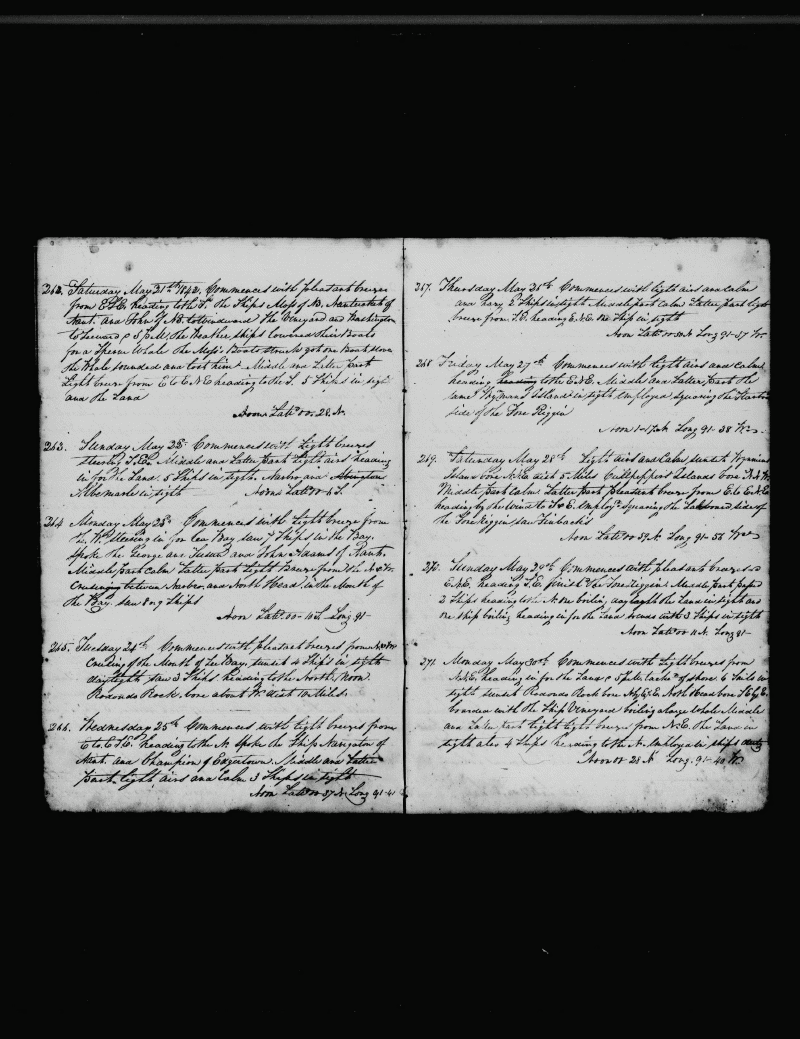 262. Saturday May 21st 1842. Commences with pleasant breezes
from E.S.E. heading to the S. The Ships Mess of NB. Nantucket of
Nant. and John of NB. to windward The Vineyard and Washington
to leeward 5 P.M. the Weather ships lowered their Boats
for a Sperm Whale The Boats got one Boat stove
the Whale sounded and took them Middle and Latter part
Light breeze from E to E.N.E heading to the S. 5 Ships in sight
and the Land
Noon Latd 00. 28. N.
263. Sunday May 22d Commences with Light breezes
steering Middle and Latter part Light airs heading
in for the Land. 5 Ships in sight. Narbro and Abington
Albemarle in sight Noons Latd 00 S.
264 Monday May 23d Commences with Light breeze from
the W. Steering in for Lee Bay saw 7 Ships in the Bay.
Spoke the George and Susan and John Adams of Nant.
Middle part Calm Latter part Light Breeze from the
Cruising between Narbro and North Head in the Mouth of
the Bay. saw 8 or 9 Ships
Noon Latd 00 S. Long 91-
265. Tuesday 24th Commences with pleasant breezes from
Cruising of the Mouth of Lee Bay, sunset 4 Ships in sight
daylight saw 3 Ships heading to the North, Noon
Redondo Rock bore about W. dist ten Miles
266. Wednesday 25th Commences with light breezes from
E to E.S.E. heading to the N. Spoke the Ship Navigator of
Nant. and Champion of Edgartown Middle and Latter
part Light airs and Calm 3 Ships in sight
Noon Latd 00 37 N. Long 91-41
267. Thursday May 26th Commences with light airs and calm
and hazy 2 Ships in sight Middle part Calm Latter part light
breeze from S.E. heading E.N.E. one Ship in sight
Noon Latd 00 N. Long 91-37 W.
268 Friday May 27th Commences with light airs and calms
heading to the E.N.E. Middle and Latter part the
same Wymans Island in sight Employed squaring the Starboard
side of the Fore Riggin
Noon N. Long 91-38 W.
269. Saturday May 28th Light airs and calms sunset Wymans
Island bore N.E. dist 5 Miles Cullpeppers Islands bore N.N.W.
Middle part Calm Latter part pleasant breeze from E. to E.N.E
heading by the wind to S.E. Employd. squaring the Larboard side of
the Fore Riggin saw Finbacks
Noon Latd 00 57 N. Long 91-56 W.
270. Sunday May 29th Commences with pleasant breezes
E.N.E. heading S.E. finishd. the Fore riggin Middle part passed
2 Ships heading to the N. one boiling daylight the Land in sight and
one Ship boiling heading in for the Land ends with 3 Ships in sight
Noon Latd 00 11 N. Long 91-
271. Monday May 30th Commences with Light breezes from
N.E. heading in for the Land, 5 P.M. tacked of shore 6 Sails in
sight sunset Redondo Rock bore North Head bore S.E.
boarded with the Ship Vineyard boiling a large Whale Middle
and Latter part light light breeze from N.E. the Land in
sight also 4 Ships heading to the N. Employed in ships duty
Noon 00 28 N. Long. 91-40 W.